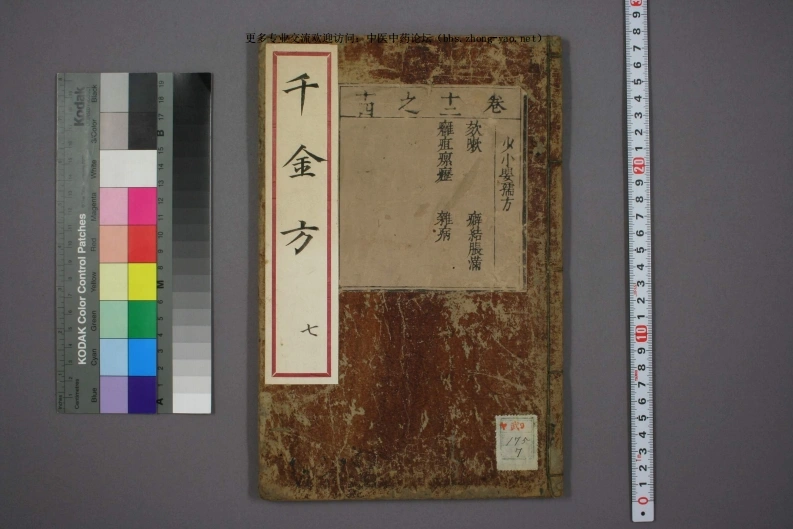 更多专业交流欢迎访问：中医中药论坛（bbs.zhong-yao.net）
千金方
七
卷十二之十四
少小嬰孺方
欬嗽
癖結脹滿
癰疽瘰癧
雜病
武9
175
7
Kodak
KODAK Color Control Patches
Blue
Cyan
Green
Yellow
Red
Magenta
White
3/Color
Black